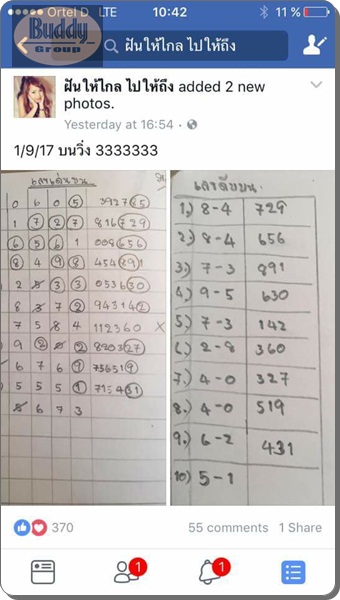 Ortel D LTE 10:42 11 %
Buddy Group
ฝันให้ไกล ไปให้ถึง
ฝันให้ไกล ไปให้ถึง added 2 new
photos.
Yesterday at 16:54
1/9/17 บนวิ่ง 3333333
เลขเด่นบน
0 6 0 5
1 7 2 7 816729
6 5 6 1 009656
8 4 9 8 454891
2 8 3 3 053630
8 3 7 2 943142
7 5 8 4 112360 X
9 2 0 2 890327
6 7 6 9 756519
5 5 5 1 715431
8 6 7 3
เลขดับบน
1.) 8-4 729
2.) 8-4 656
3.) 7-3 891
4.) 9-5 630
5.) 7-3 142
6.) 2-8 360
7.) 4-0 327
8.) 4-0 519
9.) 6-2 431
10) 5-1
370 55 comments 1 Share
1 1